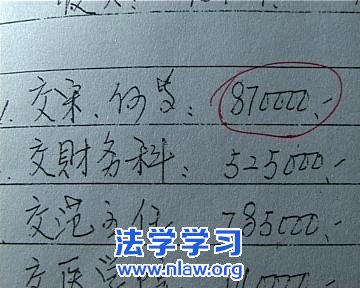 交宋、何 : 870000.-
交財务科: 525000.-
交范主任 785000.-
法学学习
www.nlaw.org
交医学